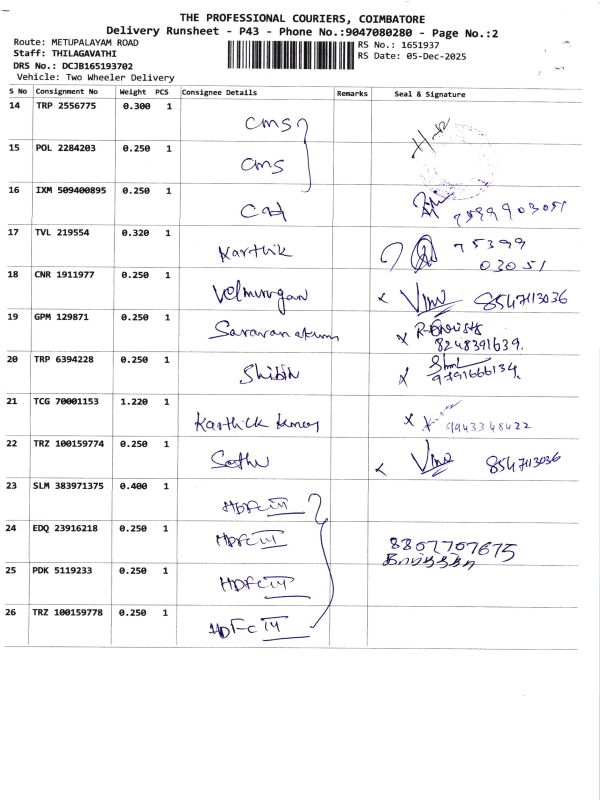 THE PROFESSIONAL COURIERS, COIMBATORE
Delivery Runsheet - P43 - Phone No.:9047080280 - Page No.:2
Route: METUPALAYAM ROAD
Staff: THILAGAVATHI
DRS No.: DCJB165193702
Vehicle: Two Wheeler Delivery
RS No.: 1651937
RS Date: 05-Dec-2025
S No Consignment No Weight PCS Consignee Details Remarks Seal & Signature
14 TRP 2556775 0.300 1 CMS
15 POL 2284203 0.250 1 CMS
16 IXM 509400895 0.250 1
17 TVL 219554 0.320 1 Karthik 75399
03051
18 CNR 1911977 0.250 1 Velmurugan x Vino 8547113036
19 GPM 129871 0.250 1 Saravanakumar x
8248391639.
20 TRP 6394228 0.250 1 Shibin x
9791666134.
21 TCG 70001153 1.220 1 Karthick x 9943348422
22 TRZ 100159774 0.250 1 Sathu x Vino 8547113036
23 SLM 383971375 0.400 1 HDFC
24 EDQ 23916218 0.250 1 HDFC 8807707675
25 PDK 5119233 0.250 1 HDFC
26 TRZ 100159778 0.250 1 HDFC